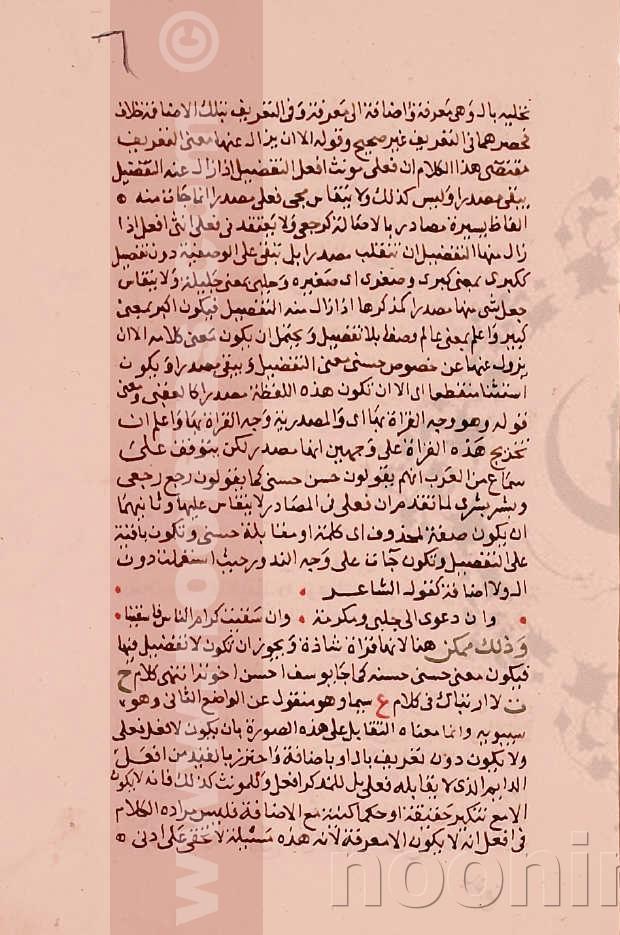 تحليه بال وهي معرفة واضافة الى معرفة وفي التعريف بتلك الاضافة خلاف
فحصرهما في التعريف غير صحيح وقوله الا ان يزال عنها معنى التعريف
مقتضى هذا الكلام ان فعلى مونث افعل التفضيل اذا زال عنه التفضيل
يبقى مصدرا وليس كذلك ولا ينقاس مجي فعلى مصدرا انما جات منه
الفاظ يسيرة مصادر بالاصالة كرجعى ولا يعتقد في فعلى انثى افعل اذا
زال منها التفضيل ان تنقلب مصدرا بل تبقى على الوصفية دون تفضيل
ككبرى بمعنى كبيرة وصغرى اى صغيره وجلى بمعنى جليلة ولا ينقاس
جعل شي منها مصدرا كمذكرها اذا زال منه التفضيل فيكون اكبر بمعنى
كبير واعلم بمعنى عالم وصفا بلا تفضيل ويحتمل ان يكون معنى كلامه الا ان
يزول عنها عن خصوص حسنى معنى التفضيل ويبقى مصدرا ويكون
استثنا منقطعا اى الا ان تكون هذه اللفظة مصدرا كالعقبى ومعنى
قوله وهو وجه القراة بها اى والمصدرية وجه القراة بها واعلم ان
تخريج هذه القراة على وجهين انها مصدر لكن يتوقف على
سماع من العرب انهم يقولون حسن حسنى كما يقولون رجع رجعى
وبشر بشرى لما تقدم ان فعلى في المصادر لا ينقاس عليها وثانيهما
ان يكون صفة لمحذوف اى كلمة او مقابلة حسنى وتكون باقية
على التفضيل وتكون جات على وجه الندور حيث استعملت دون
ال ولا اضافة كقوله الشاعر
وان دعوى الى جلى ومكرمة • وان سقيت كرام الناس فاسقينا
وذلك ممكن هنا لانها قراة شاذة ويجوز ان تكون لا تفضيل فيها
فيكون معنى حسنى حسنه كما جا يوسف احسن اخوته انتهى كلام ح
ت لا ارتباك في كلام ع سيما وهو منقول عن الواضع الثاني وهو
سيبويه وانما معناه التقابل على هذه الصورة بان يكون لافعل فعلى
ولا يكون دون تعريف بال او باضافة واحترز بالقيد من افعل
الدايم الذى لا يقابله فعلى بل للمذكر افعل وللمونث كذلك فانه لا يكون
الا مع تنكير حقيقة او حكما كمنه مع الاضافة فليس مراده الكلام
في افعل انه لا يكون الا معرفة لانه هذه مسئلة لا تخفى على ادنى
www.noonin
noonin
©